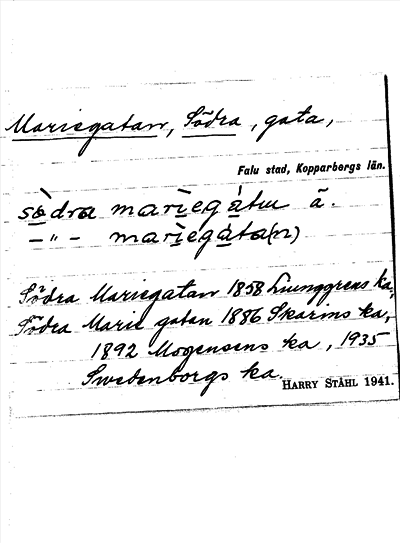 Mariegatan, Södra, gata,
Falu stad, Kopparbergs län.
sò̱dra mari̱egá̱tu ä.
– " – mari̱egá̱ta(n)
Södra Mariegatan 1858 Ljunggrens ka,
Södra Marie gatan 1886 Skarins ka,
1892 Mogensens ka, 1935
Swedenborgs ka.
HARRY STÅHL 1941.